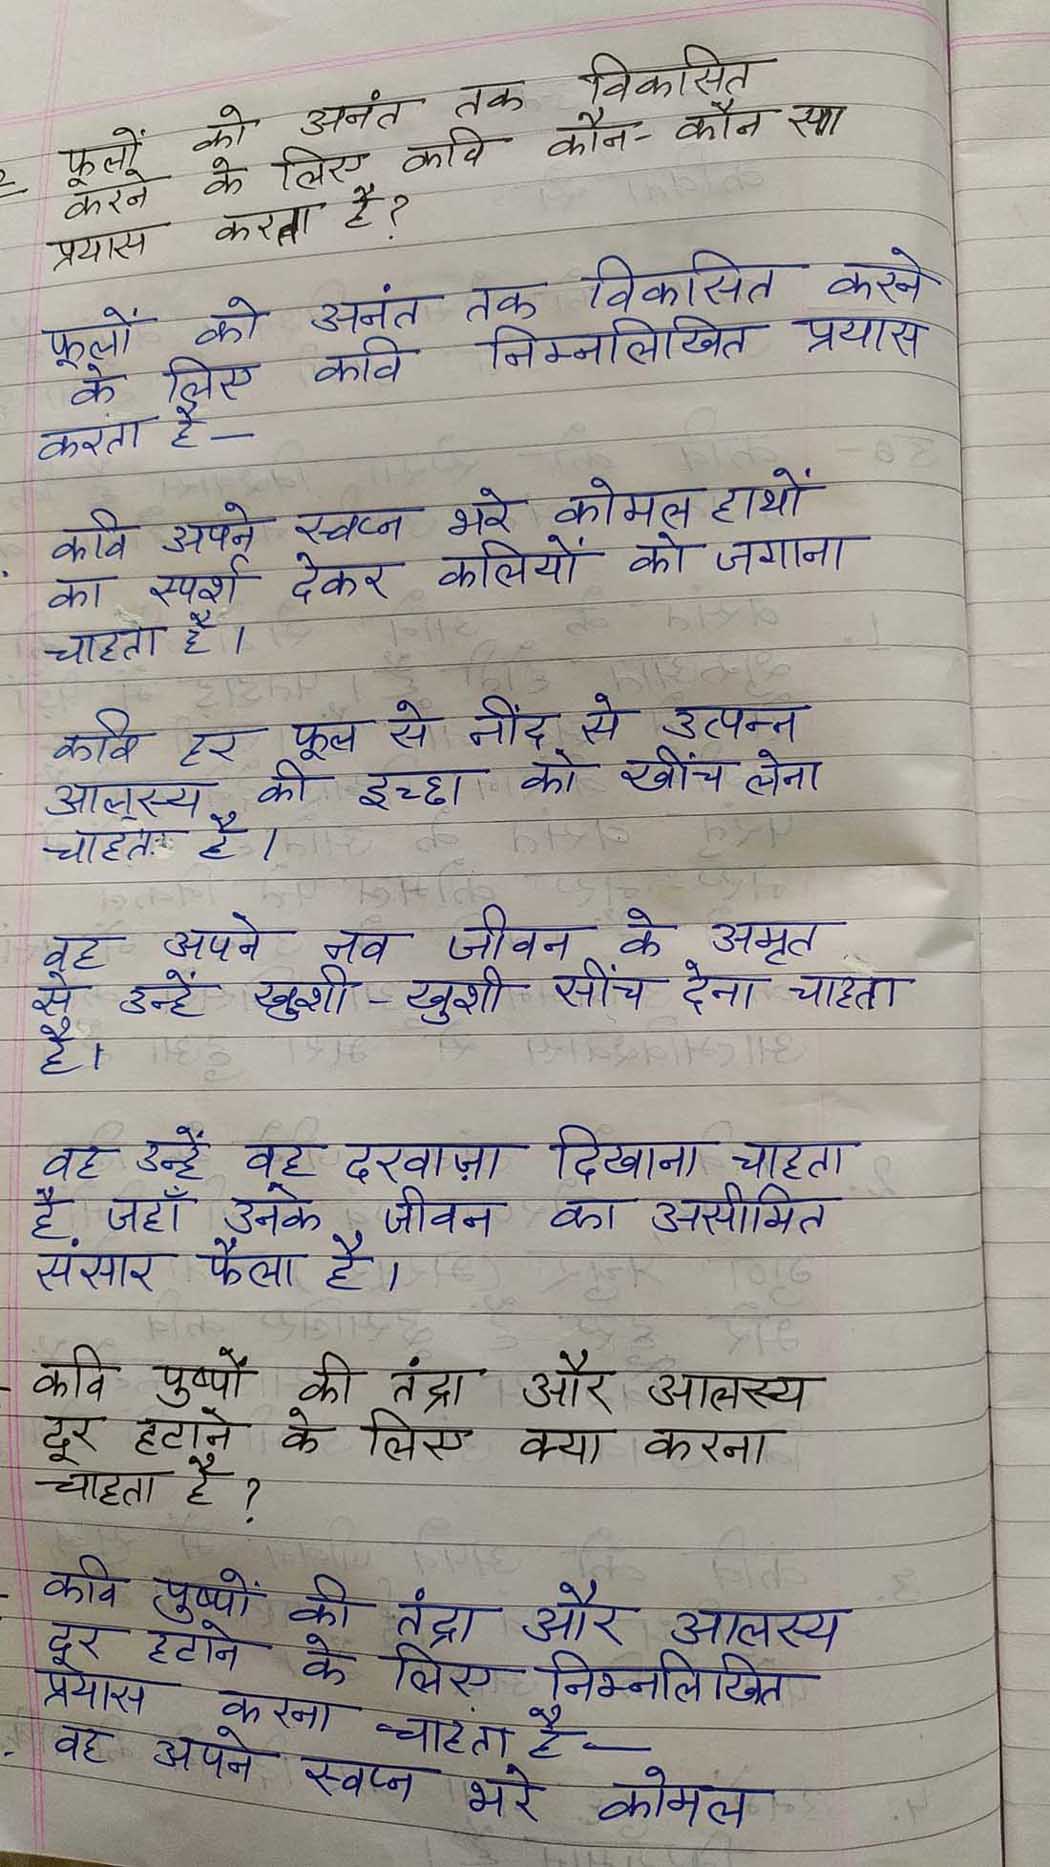 फूलों को अनंत तक विकसित
करने के लिए कवि कौन-कौन सा
प्रयास करता है?
फूलों को अनंत तक विकसित करने
के लिए कवि निम्नलिखित प्रयास
करता है —
कवि अपने स्वप्न भरे कोमल हाथों
का स्पर्श देकर कलियों को जगाना
चाहता है।
कवि हर फूल से नींद से उत्पन्न
आलस्य की इच्छा को खींच लेना
चाहता है।
वह अपने नव जीवन के अमृत
से उन्हें खुशी-खुशी सींच देना चाहता
है।
वह उन्हें वह दरवाज़ा दिखाना चाहता
है जहाँ उनके जीवन का असीमित
संसार फैला है।
कवि पुष्पों की तंद्रा और आलस्य
दूर हटाने के लिए क्या करना
चाहता है?
कवि पुष्पों की तंद्रा और आलस्य
दूर हटाने के लिए निम्नलिखित
प्रयास करना चाहता है —
वह अपने स्वप्न भरे कोमल